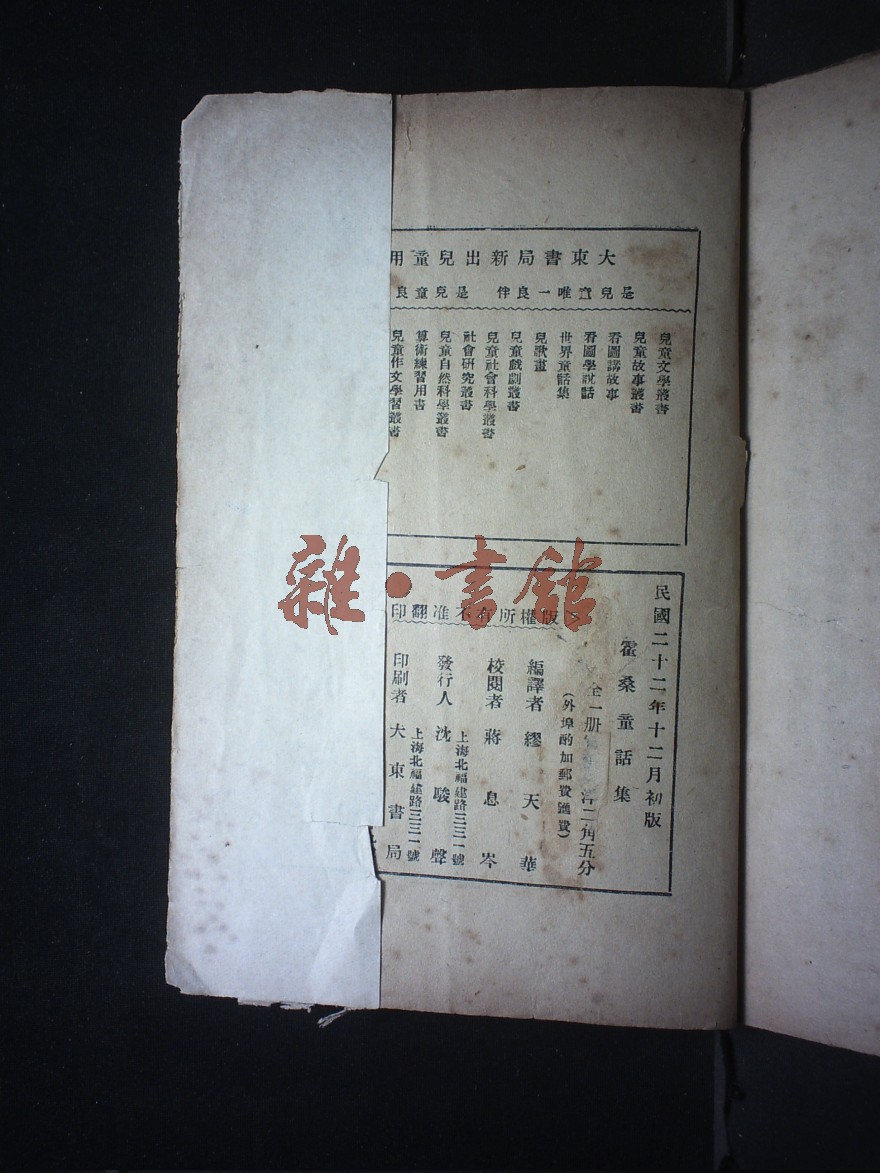 大東書局新出兒童用
是兒童唯一良伴 是兒童良
兒童文學叢書
兒童故事叢書
看圖講故事
看圖學說話
世界童話集
兒歌畫
兒童戲劇叢書
兒童社會科學叢書
社會研究叢書
兒童自然科學叢書
算術練習用書
兒童作文學習叢書
民國二十二年十二月初版
霍桑童話集
全一冊 洋二角五分
(外埠酌加郵費匯費)
版權所有不准翻印
編譯者 繆天華
校閱者 蔣息岑
發行人 沈駿聲
上海北福建路三三一號
印刷者 大東書局
上海北福建路三三一號
雜·書館